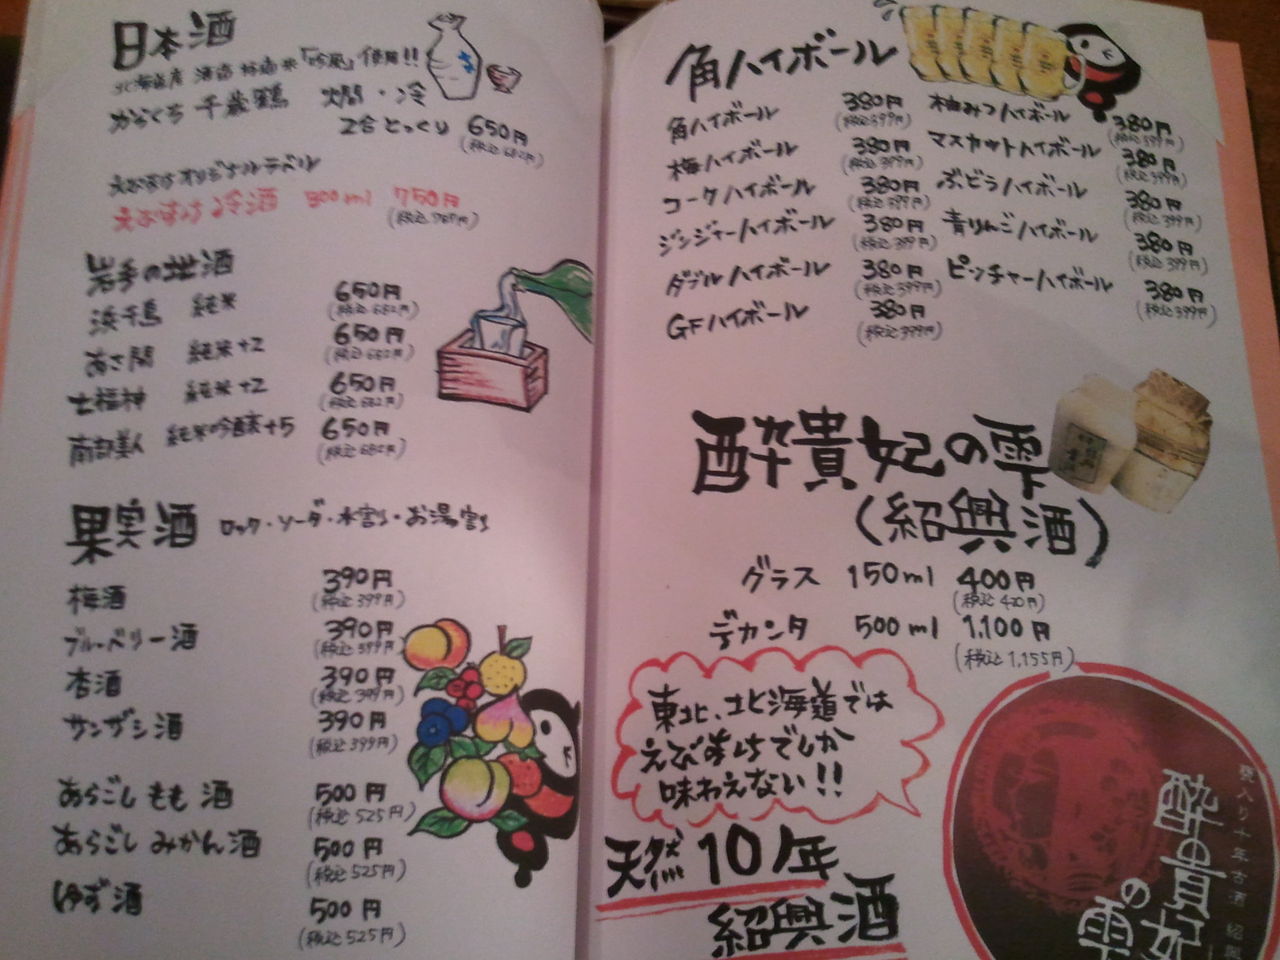 日本酒
北海道産 酒造好適米「吟風」使用!!
からくち 千歳鶴 燗・冷
2合とっくり 650円
(税込682円)
えびすけオリジナルラベル
えびすけ冷酒 300ml 750円
(税込787円)
岩手の地酒
浜千鳥 純米 650円
(税込682円)
あさ開 純米+2 650円
(税込682円)
七福神 純米+2 650円
(税込682円)
南部美人 純米吟醸+5 650円
(税込682円)
果実酒 ロック・ソーダ・水割り・お湯割り
梅酒 390円
(税込399円)
ブルーベリー酒 390円
(税込399円)
杏酒 390円
(税込399円)
サンザシ酒 390円
(税込399円)
あらごしもも酒 500円
(税込525円)
あらごしみかん酒 500円
(税込525円)
ゆず酒 500円
(税込525円)
角ハイボール
角ハイボール 380円
(税込399円)
梅ハイボール 380円
(税込399円)
コークハイボール 380円
(税込399円)
ジンジャーハイボール 380円
(税込399円)
ダブルハイボール 380円
(税込399円)
GFハイボール 380円
(税込399円)
柚みつハイボール 380円
(税込399円)
マスカットハイボール 380円
(税込399円)
ぶどうハイボール 380円
(税込399円)
青りんごハイボール 380円
(税込399円)
ピッチャーハイボール 380円
(税込399円)
酔貴妃の雫
(紹興酒)
グラス 150ml 400円
(税込420円)
デカンタ 500ml 1,100円
(税込1,155円)
東北、北海道では
えびすけでしか
味わえない!!
天然10年
紹興酒
甕入り十年古酒 紹興
酔貴妃
の雫